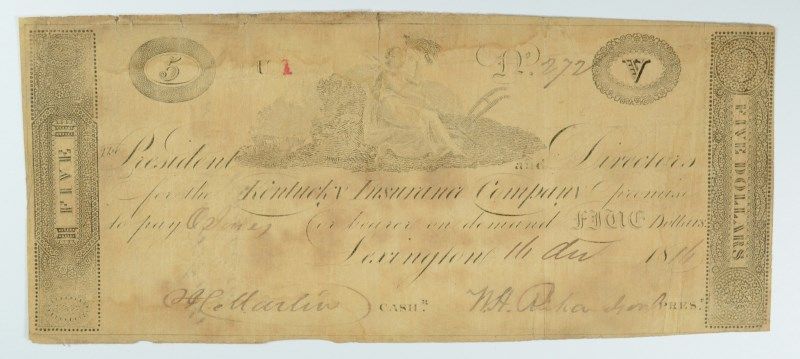 5 U 1 No. 272 V
The President and Directors
for the Kentucky Insurance Company promise
to pay or bearer on demand FIVE Dollars
Lexington 16 1816
CASHR. W. H. Richardson PREST.
FIVE
FIVE DOLLARS